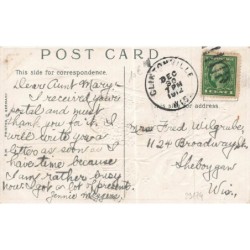 POST CARD
This side for correspondence.
Dear Aunt Mary-
I received your
postal and must
thank you for it. I
will write you a
letter as soon as I
have time because
I am rather busy
now. got a lot of present.
Jennie
CLINTONVILLE
DEC
PM
1912
WIS.
Miss Fred Wilgrube
1124 Broadway st
Sheboygan
Wis.